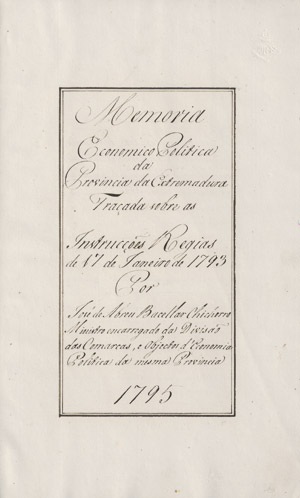 Memoria
Economico Politica
da
Provincia da Extremadura
Traçada sobre as
Instrucções Regias
de 17 de Janeiro de 1793
Por
José de Abreu Bacellar Chichorro
Ministro encarregado da Divisaõ
das Comarcas, e Objectos d'Economia
Politica da mesma Provincia
1795